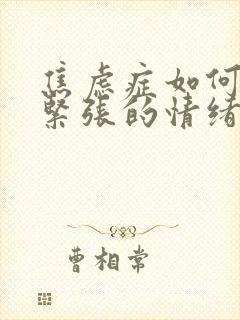 焦虑症如何
緊張的情绪
曹相常